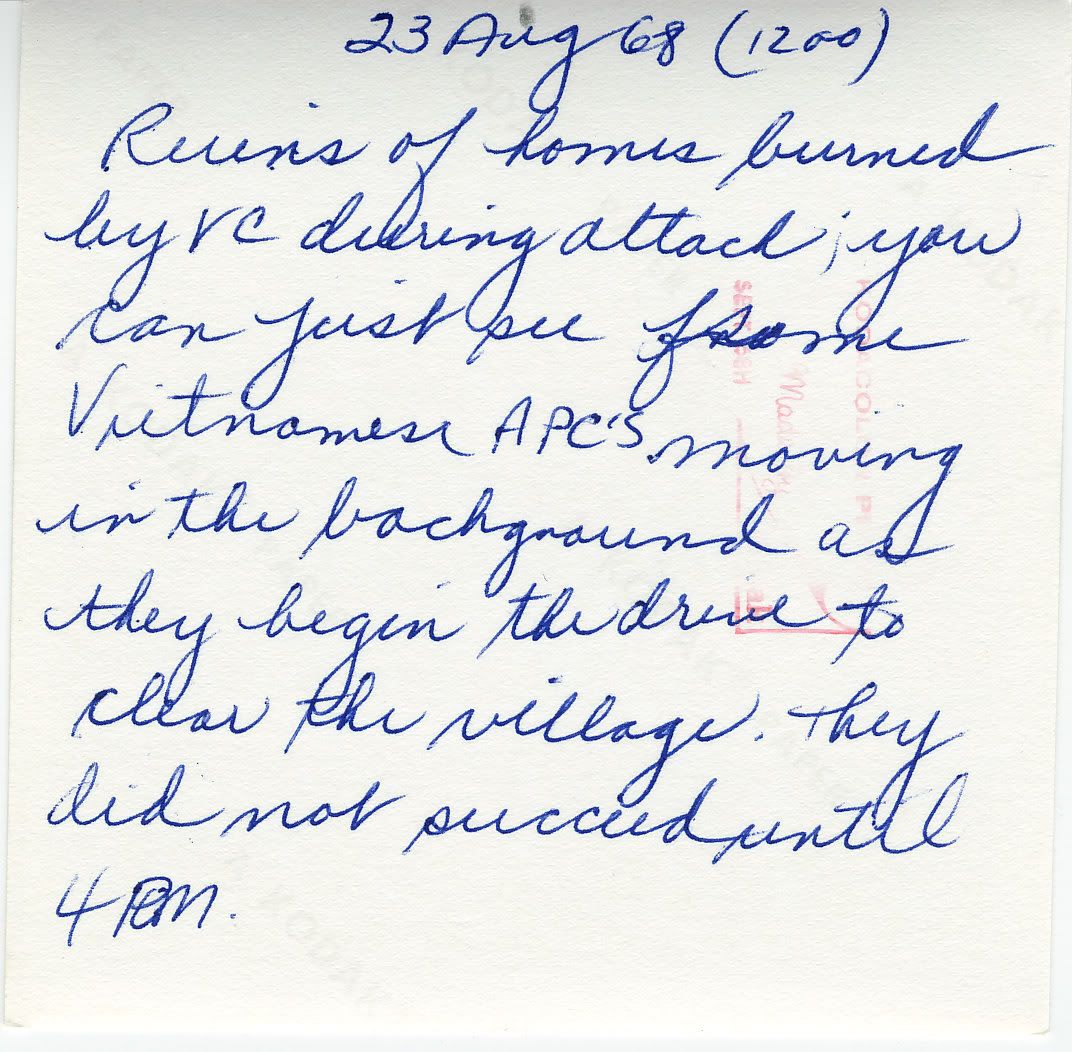 23 Aug 68 (1200)
Ruins of homes burned
by VC during attack; you
can just see some
Vietnamese APC'S moving
in the background as
they begin the drive to
clear the village. They
did not succeed until
4 PM.